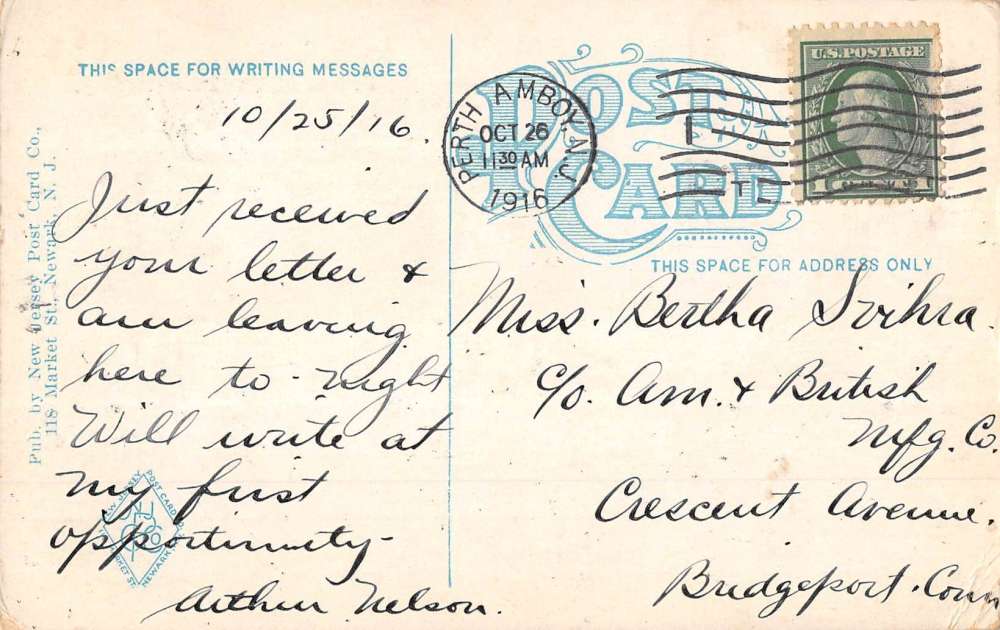 THIS SPACE FOR WRITING MESSAGES
10/25/16.
Just received
your letter &
am leaving
here to-night
Will write at
my first
opportunity-
Arthur Nelson.
Pub. by New Jersey Post Card Co.,
118 Market St., Newark, N. J.
NEW JERSEY POST CARD CO.
MARKET ST. NEWARK
POST CARD
PERTH AMBOY, N.J.
OCT 26
11 30 AM
1916
U.S. POSTAGE
1 1
THIS SPACE FOR ADDRESS ONLY
Miss. Bertha Svihra.
c/o. Am. & British
Mfg. Co.
Crescent Avenue.
Bridgeport. Conn